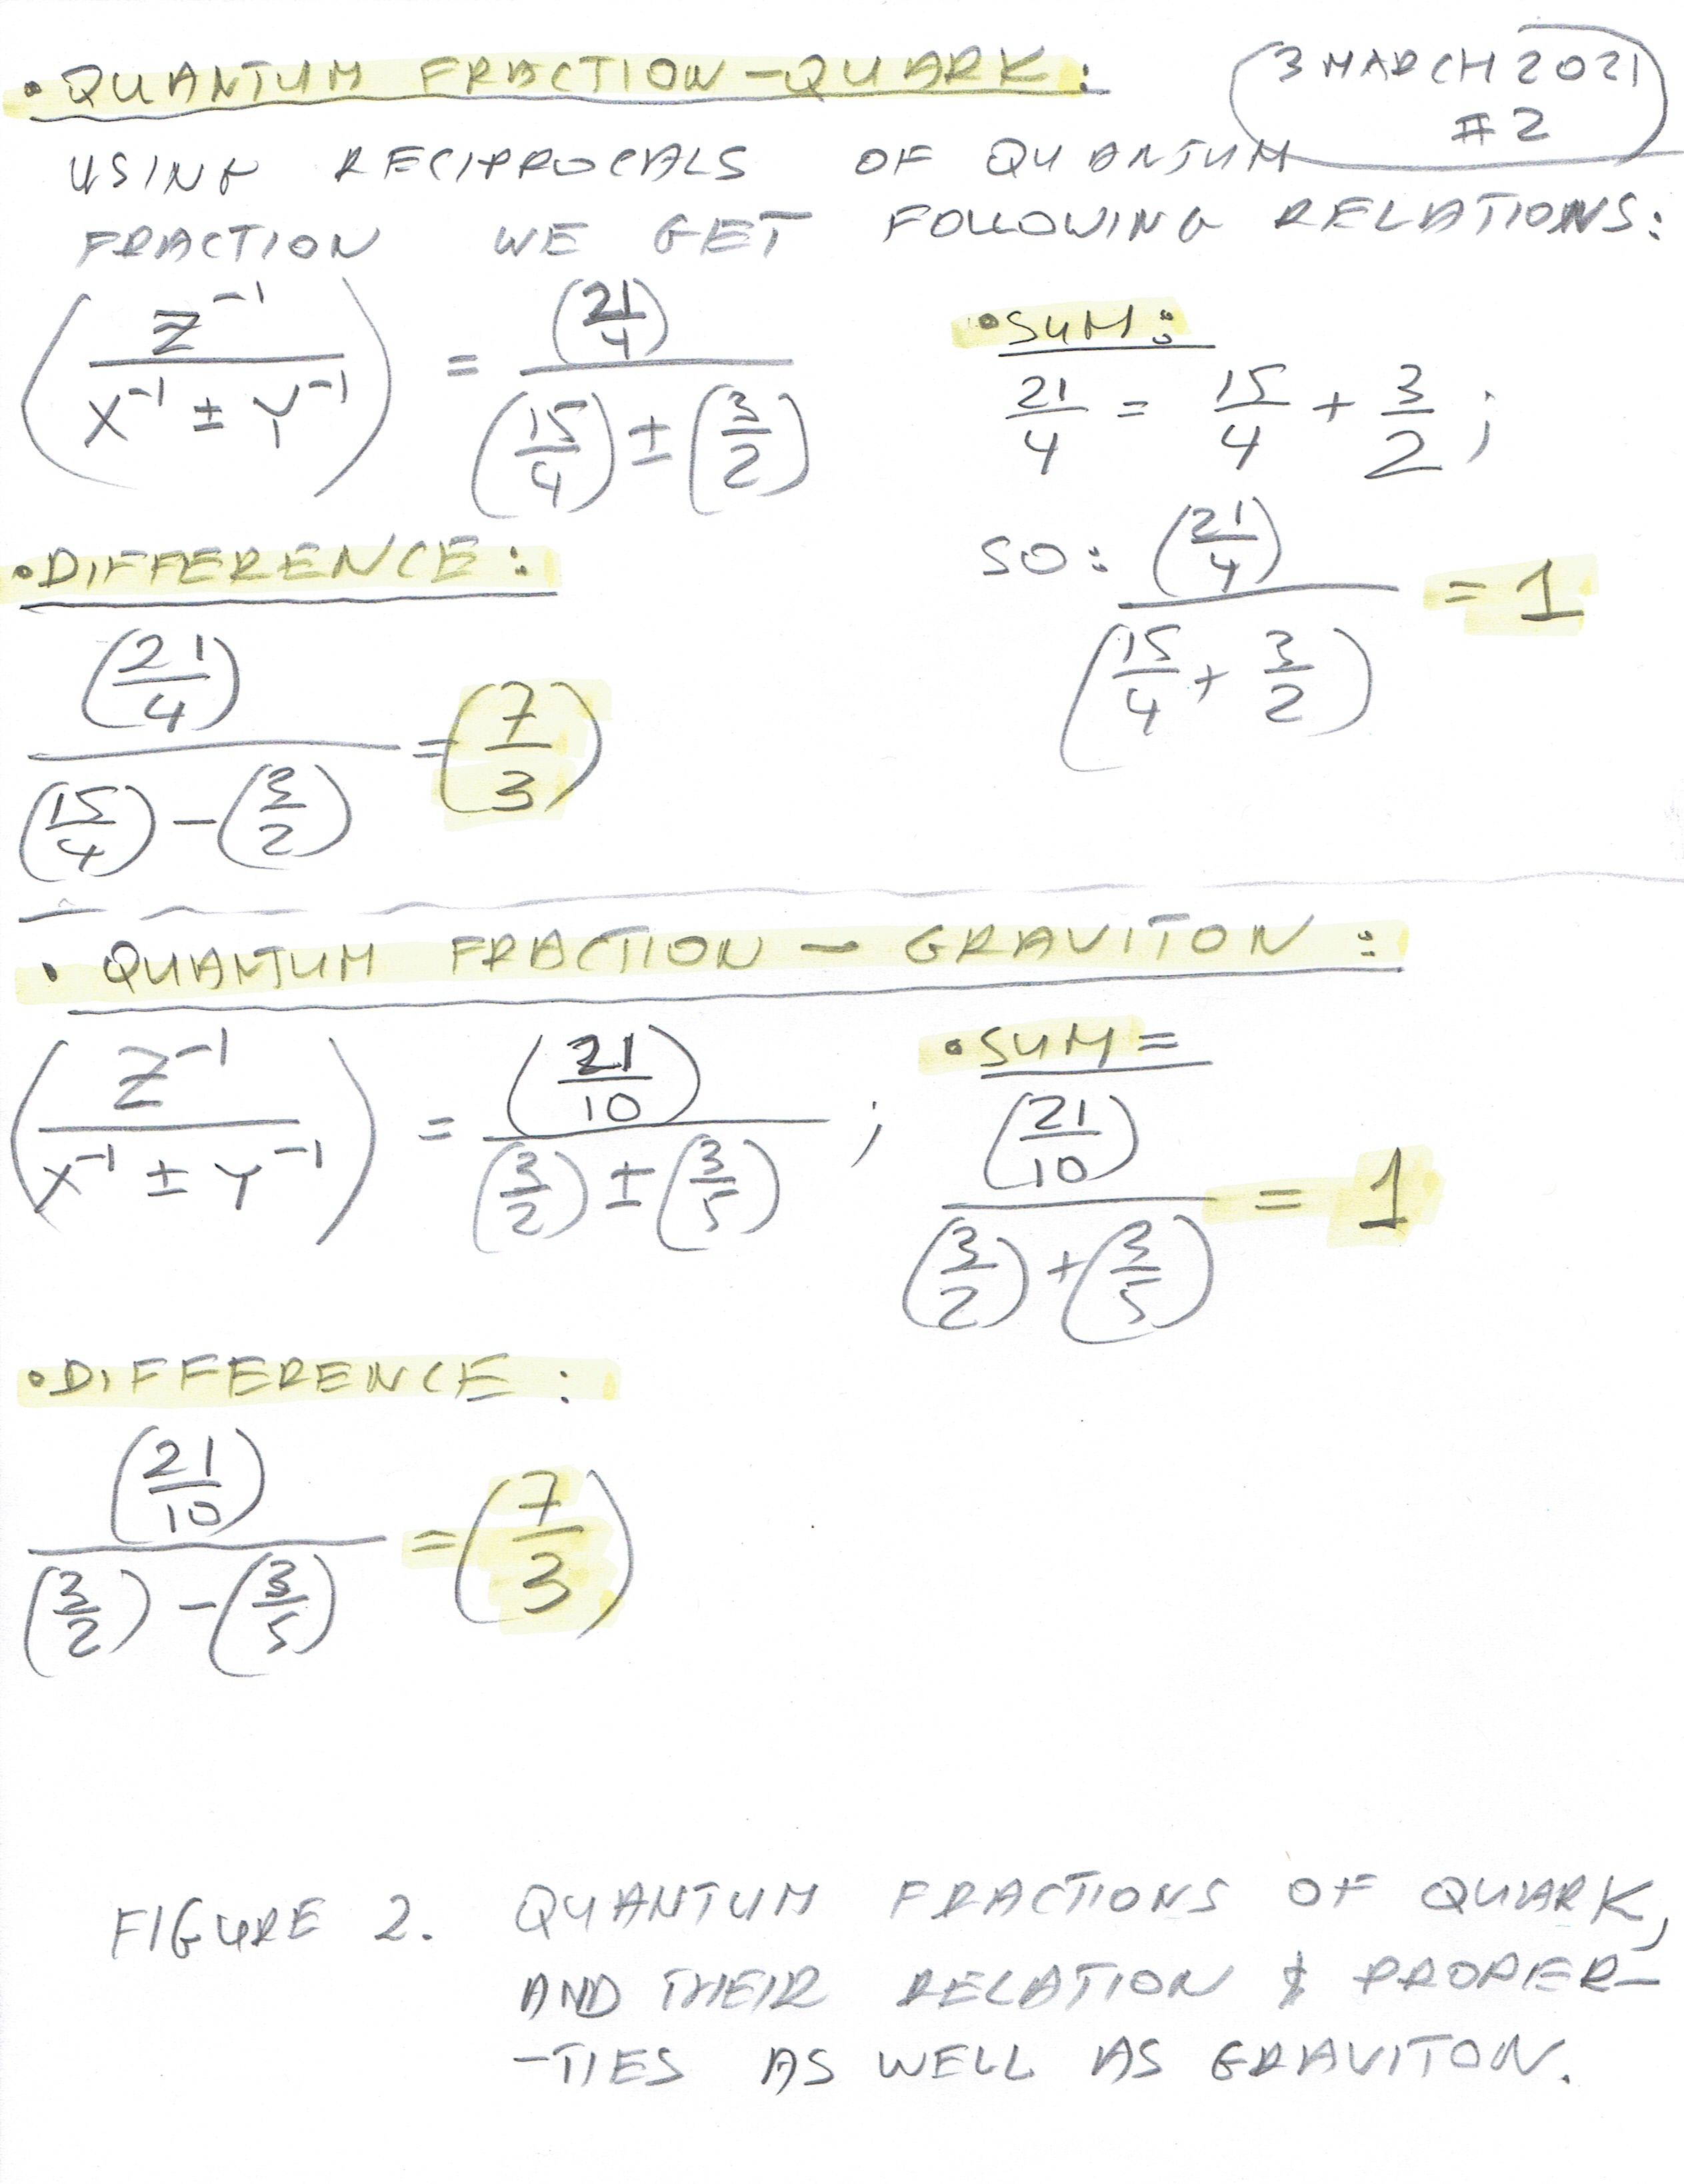 • QUANTUM FRACTION – QUARK :
3 MARCH 2021
# 2
USING RECIPROCALS OF QUANTUM
FRACTION WE GET FOLLOWING RELATIONS:
(z⁻¹ / (x⁻¹ ± y⁻¹)) = (21/4) / ((15/4) ± (3/2))
• SUM :
21/4 = 15/4 + 3/2 ;
SO : (21/4) / (15/4 + 3/2) = 1
• DIFFERENCE :
(21/4) / ((15/4) – (3/2)) = (7/3)
• QUANTUM FRACTION – GRAVITON :
(z⁻¹ / (x⁻¹ ± y⁻¹)) = (21/10) / ((3/2) ± (3/5)) ;
• SUM =
(21/10) / ((3/2) + (3/5)) = 1
• DIFFERENCE :
(21/10) / ((3/2) – (3/5)) = (7/3)
FIGURE 2. QUANTUM FRACTIONS OF QUARK,
AND THEIR RELATION & PROPER–
–TIES AS WELL AS GRAVITON.